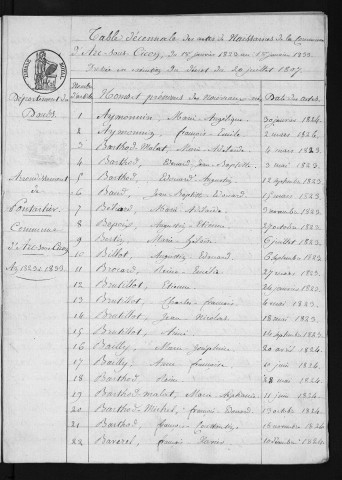 Table décennale des actes de Naissances de la Commune
d'Arc sous Cicon, du 1er janvier 1823 au 1er janvier 1833.
Dressée en exécution du Décret du 20 juillet 1807.
Département du
Doubs.
Arrondissement
de
Pontarlier
Commune
d'Arc-sous-Cicon
1823 à 1833.
Noms et prénoms des nouveaux nés
Date des actes
1 Aymonnin, Marie Angélique 30 janvier 1824.
2 Aymonnin, françois Emile 2 mars 1826.
3 Barthod Malat, Marie Adélaïde 4 mars 1823.
4 Barthod, Edouard Jean Baptiste 3 mai 1823.
5 Barthod, Augustin 12 septembre 1823.
6 Baud, Jean Baptiste Edouard
7 Marie Adélaïde 3 novembre 1823.
8 Augustin Etienne 27 octobre 1823.
9 Marie 6 juillet 1823.
10 Billot, Augustin Edouard 6 septembre 1823.
11 Brocard, 27 mars 1823.
12 Brutillot, 24 1823.
13 Brutillot, Charles françois 4 mai 1823.
14 Brutillot, Jean Nicolas 18 mai 1823.
15 Brutillot, Aimé 14 septembre 1823.
16 Bailly, Marie Joséphine 20 avril 1824.
17 Bailly, Anne françoise 10 juin 1824.
18 Barthod 28 mai 1824.
19 Barthod malat, Marie Alphonsine 11 juin 1824.
20 Barthod Michel, françois Edouard 13 octobre 1824.
21 Barthod, françois Constantin 16 novembre 1824.
22 françois Xavier 10 décembre 1824.